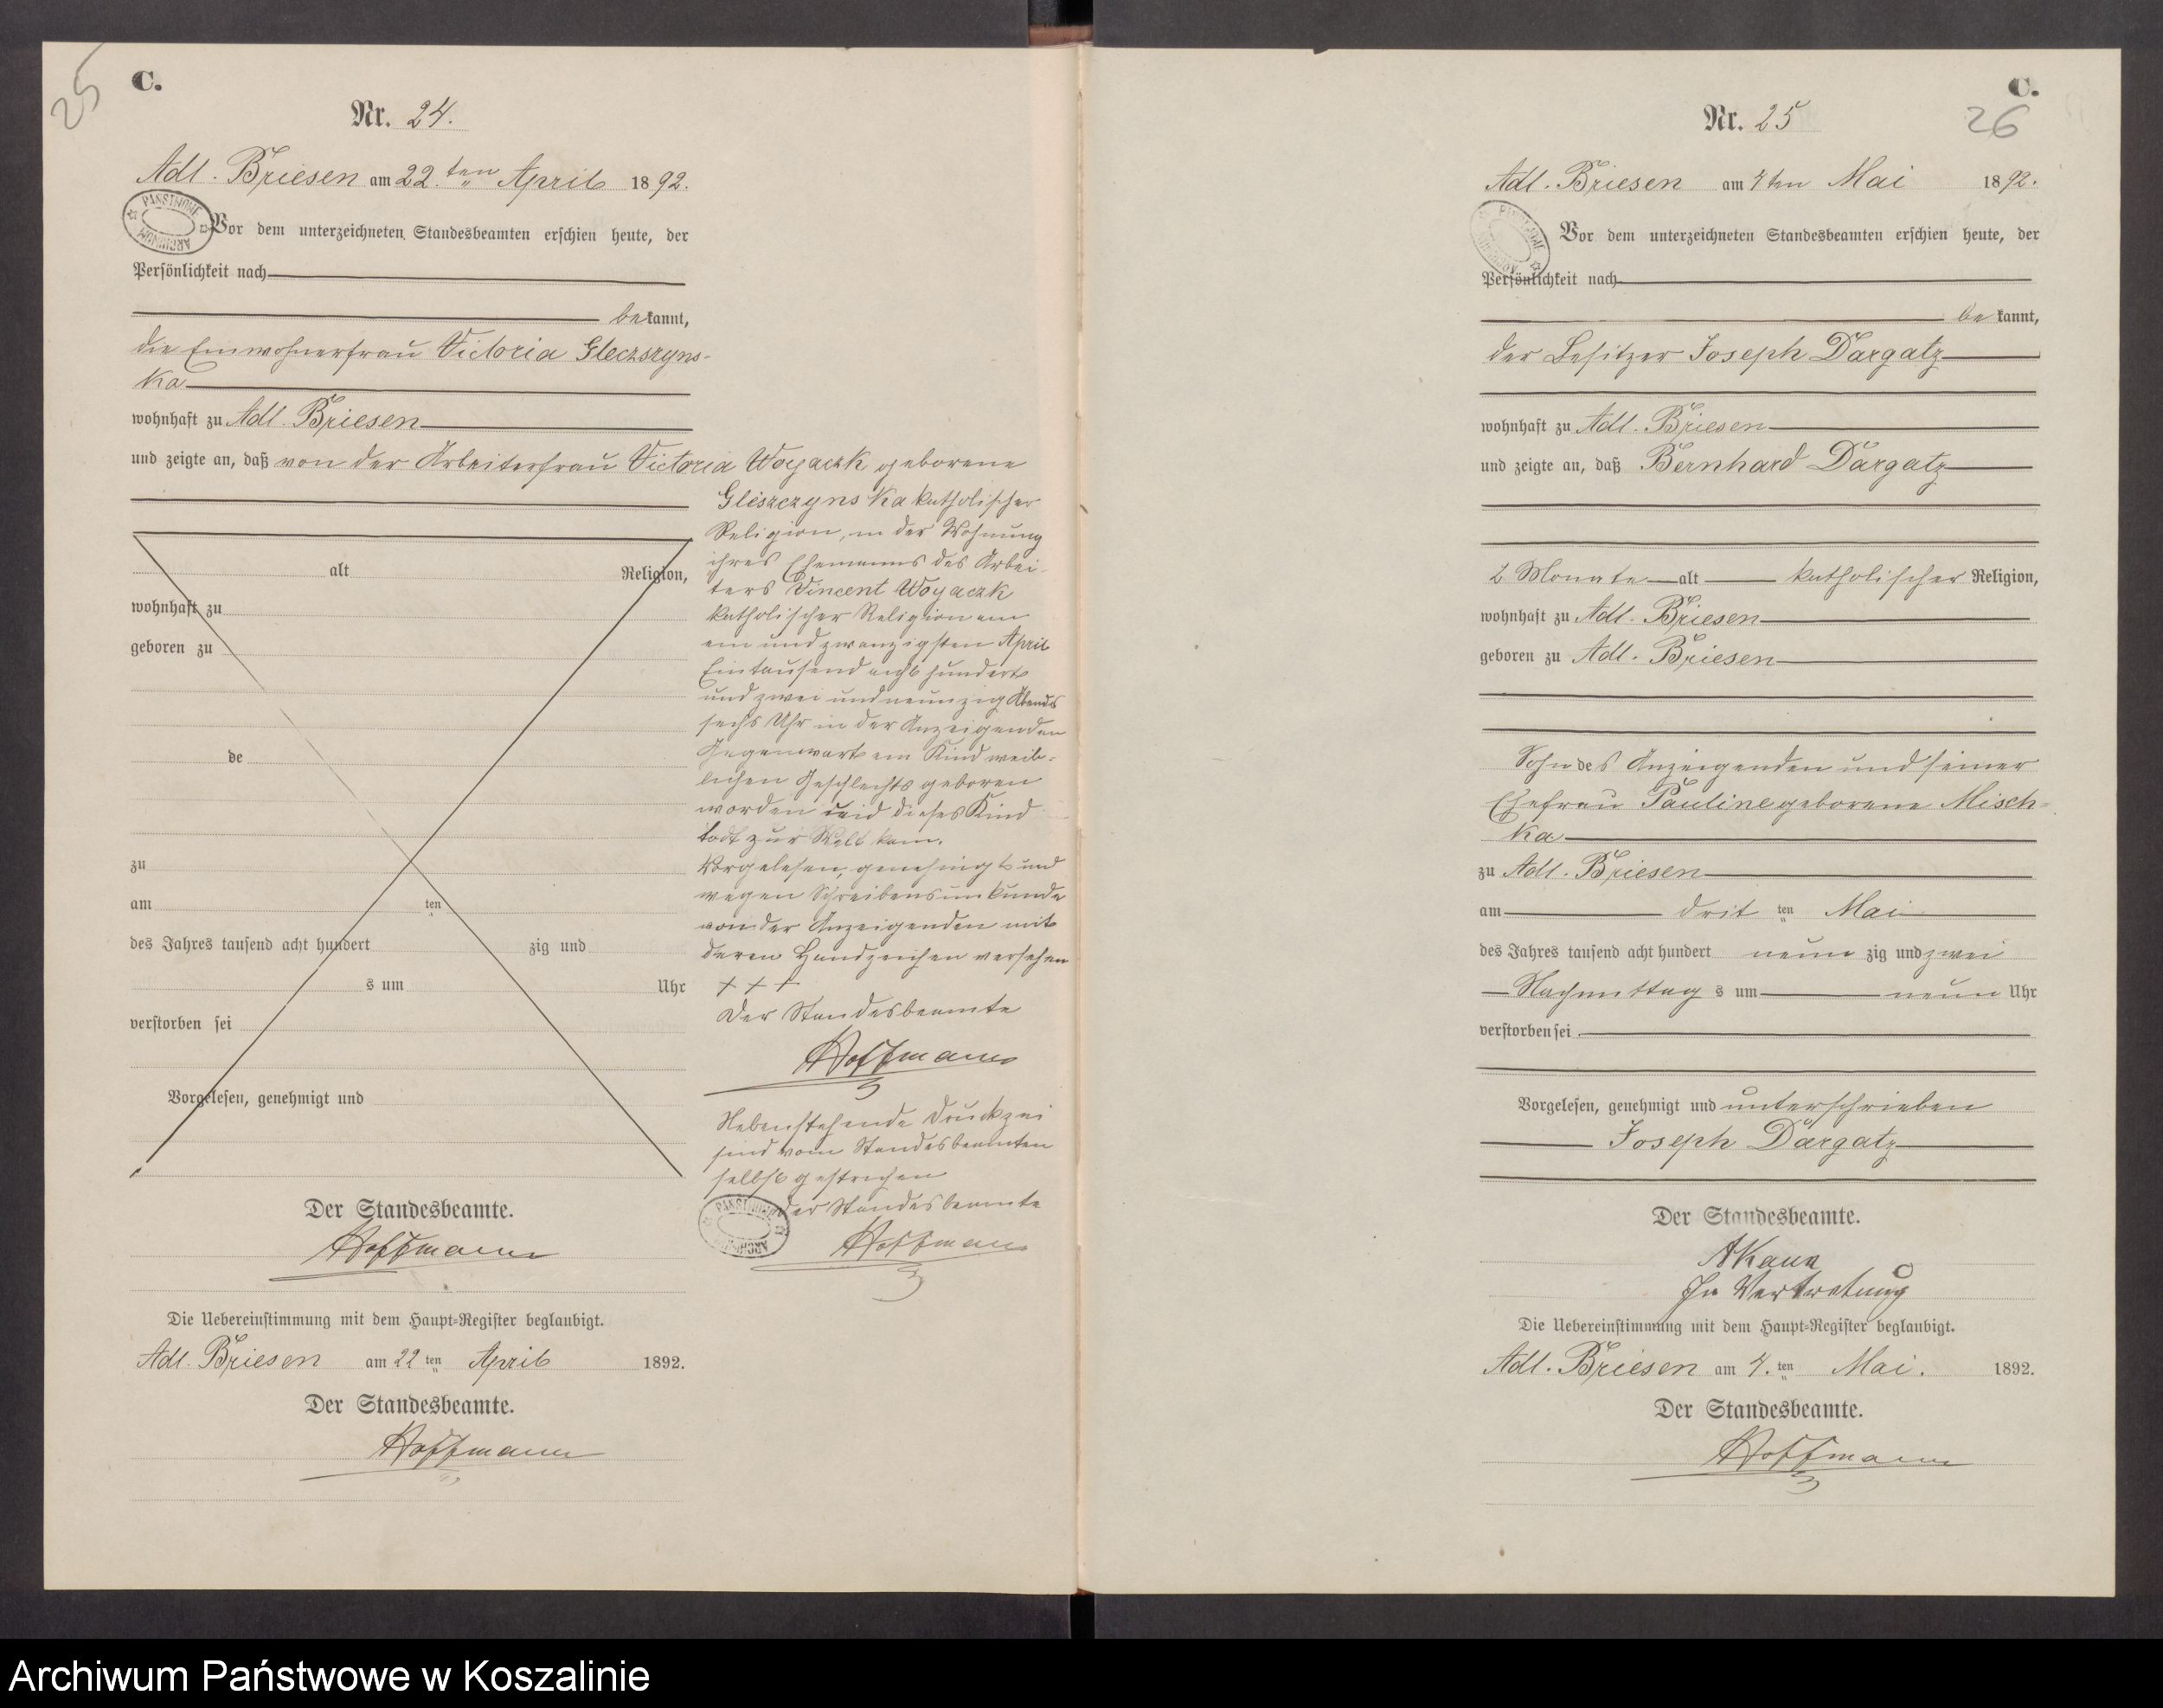 25
C.
Nr. 24.
Adl. Briesen am 22. ten April 1892.
PAŃSTWOWE ARCHIWUM
Vor dem unterzeichneten Standesbeamten erschien heute, der
Persönlichkeit nach
bekannt,
die Einwohnerfrau Victoria Gleczszyns-
ka
wohnhaft zu Adl. Briesen
und zeigte an, daß von der Arbeiterfrau Victoria Woyaczk geborene
Gliszczynska katholischer
Religion, in der Wohnung
ihres Ehemanns des Arbei-
ters Vincent Woyaczk
katholischer Religion am
ein und zwanzigsten April
Eintausend acht hundert
und zwei und neunzig Abends
sechs Uhr in der Anzeigenden
Gegenwart ein Kind weib-
lichen Geschlechts geboren
worden und dieses Kind
todt zur Welt kam.
Vorgelesen, genehmigt und
wegen Schreibensunkunde
von der Anzeigenden mit
deren Handzeichen versehen
+ + +
Der Standesbeamte
Hoffmann
Nebenstehende Druckzei
sind vom Standesbeamten
selbst gestrichen
Der Standesbeamte
PAŃSTWOWE ARCHIWUM
Hoffmann
alt Religion,
wohnhaft zu
geboren zu
de
zu
am ten
des Jahres tausend acht hundert zig und
s um Uhr
verstorben sei
Vorgelesen, genehmigt und
Der Standesbeamte.
Hoffmann
Die Uebereinstimmung mit dem Haupt-Register beglaubigt.
Adl. Briesen am 22 ten April 1892.
Der Standesbeamte.
Hoffmann
C.
Nr. 25
26
Adl. Briesen am 4 ten Mai 1892.
PAŃSTWOWE ARCHIWUM
Vor dem unterzeichneten Standesbeamten erschien heute, der
Persönlichkeit nach
bekannt,
der Besitzer Joseph Dargatz
wohnhaft zu Adl. Briesen
und zeigte an, daß Bernhard Dargatz
2 Monate alt katholischer Religion,
wohnhaft zu Adl. Briesen
geboren zu Adl. Briesen
Sohn des Anzeigenden und seiner
Ehefrau Pauline geborene Misch-
ka
zu Adl. Briesen
am drit ten Mai
des Jahres tausend acht hundert neun zig und zwei
Nachmittag s um neun Uhr
verstorben sei.
Vorgelesen, genehmigt und unterschrieben
Joseph Dargatz
Der Standesbeamte.
In Vertretung
Die Uebereinstimmung mit dem Haupt-Register beglaubigt.
Adl. Briesen am 4. ten Mai. 1892.
Der Standesbeamte.
Hoffmann
Archiwum Państwowe w Koszalinie